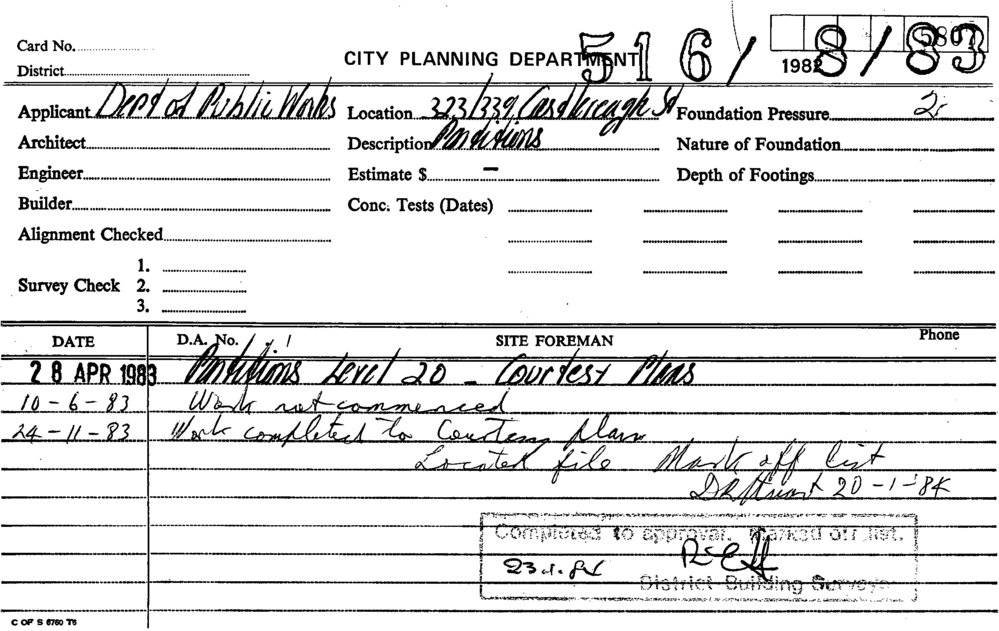 Card No.
CITY PLANNING DEPARTMENT
516/8/83
5807
1982
District
Applicant Dept of Public Works Location 323/339, Castlereagh St Foundation Pressure
Architect Description Partitions Nature of Foundation
Engineer Estimate $ – Depth of Footings
Builder Conc. Tests (Dates)
Alignment Checked
1.
Survey Check 2.
3.
DATE D.A. No. SITE FOREMAN Phone
28 APR 1983 Partitions Level 20 - Courtesy Plans
10-6-83 Work not commenced
24-11-83 Work completed to Courtesy plan
Located file Mark off list
20-1-84
Completed to approval. Marked off list.
23.1.84
District Building Surveyor
C OF S 6760 T6